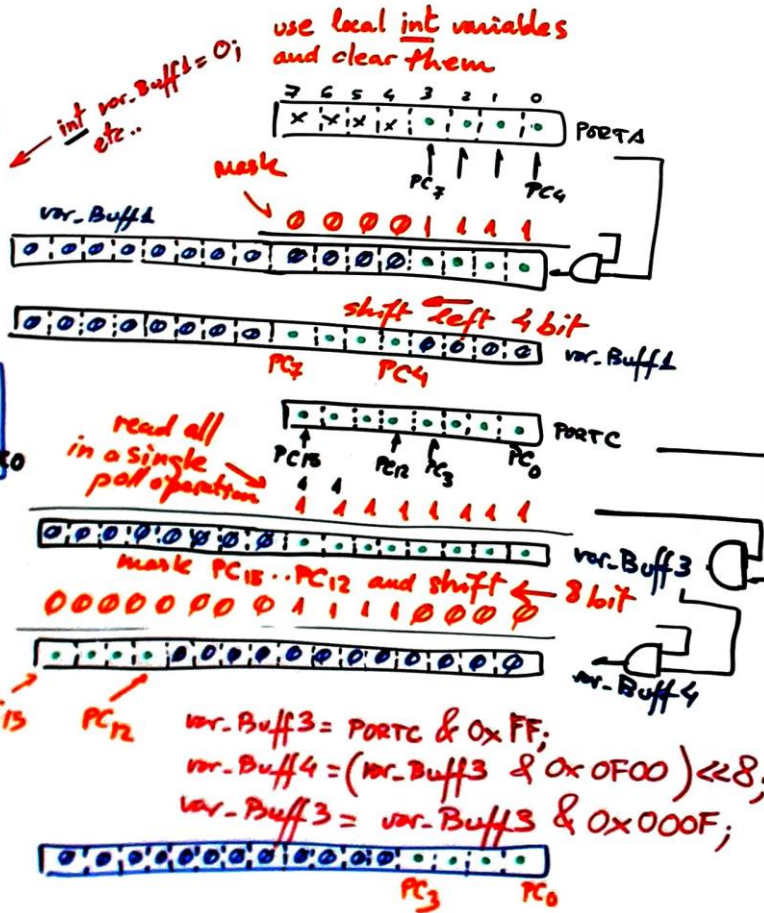 use local int variables
and clear them
int var_Buff1 = 0;
etc..
7 6 5 4 3 2 1 0
x x x x
PORTA
PC7 PC4
mask
0 0 0 0 1 1 1 1
var_Buff1
0 0 0 0 0 0 0 0 0 0 0 0
shift left 4 bit
0 0 0 0 0 0 0 0 0 0 0 0
var_Buff1
PC7 PC4
PORTC
read all
in a single
poll operation
PC15 PC12 PC3 PC0
1 1
1 1 1 1 1 1 1 1
0 0 0 0 0 0 0 0
var_Buff3
mask PC15..PC12 and shift ← 8 bit
0 0 0 0 0 0 0 0 1 1 1 1 0 0 0 0
0 0 0 0 0 0 0 0 0 0 0 0
var_Buff4
PC12
var_Buff3 = PORTC & 0xFF;
var_Buff4 = (var_Buff3 & 0x0F00) <<8;
var_Buff3 = var_Buff3 & 0x000F;
0 0 0 0 0 0 0 0 0 0 0 0
PC3 PC0